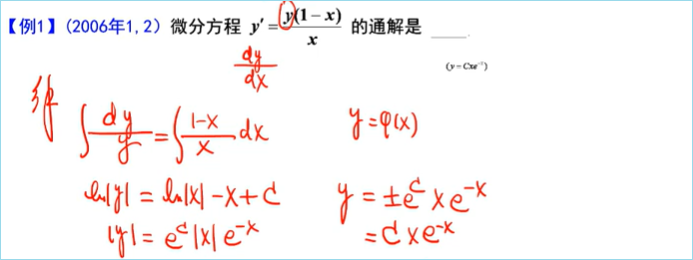 【例1】(2006年1,2) 微分方程 y′ = y(1−x)/x 的通解是 ____.
dy/dx
(y = Cxe⁻ˣ)
解 ∫ dy/y = ∫ (1-x)/x dx
y = φ(x)
ln|y| = ln|x| - x + C
y = ±eᶜ x e⁻ˣ
|y| = eᶜ |x| e⁻ˣ
= C x e⁻ˣ